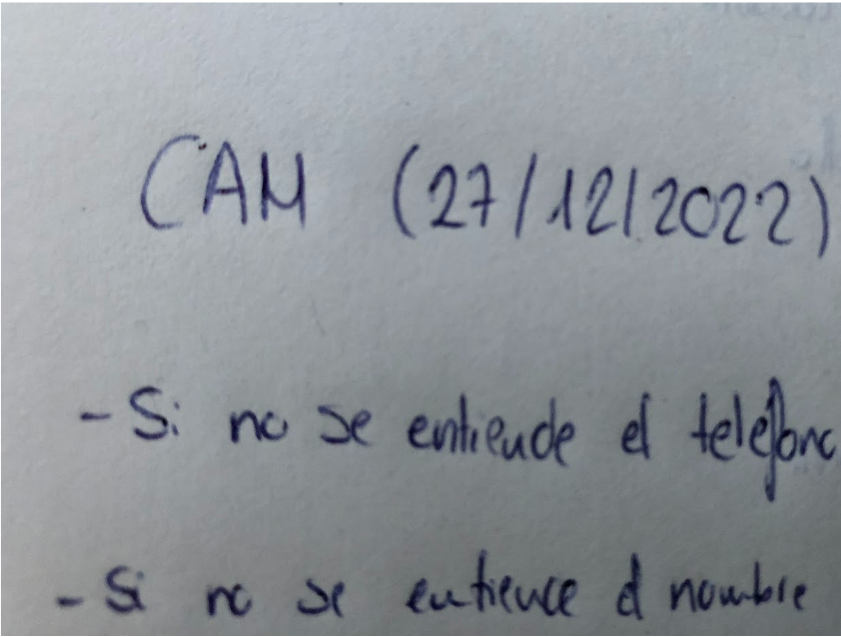 CAM (27/12/2022)
- Si no se entiende el teléfono
- Si no se entiende el nombre